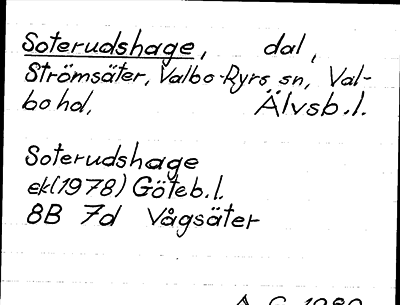 Soterudshage, dal,
Strömsäter, Valbo-Ryrs sn, Val-
bo hd, Älvsb.l.
Soterudshage
ek(1978) Göteb.l.
8B 7d Vågsäter